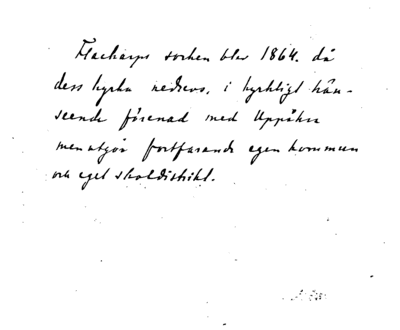 Flackarps socken blev 1864. då
dess kyrka nedrevs, i kyrkligt hän-
seende förenad med Uppåkra
men utgör fortfarande egen kommun
och eget skoldistrikt.